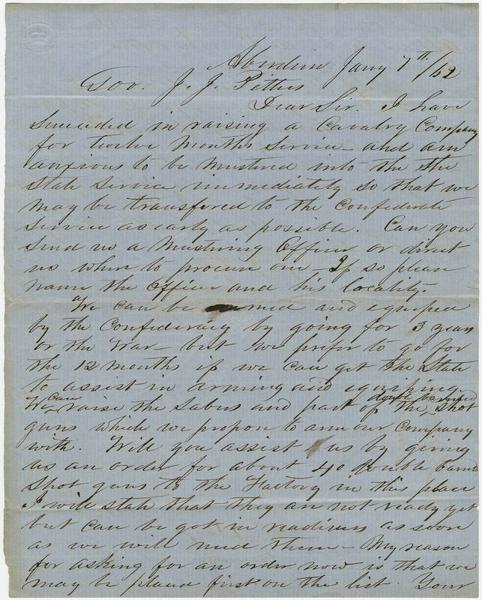 Aberdeen Jany 7th /62
Gov. J. J. Pettus
Dear Sir. I have
succeeded in raising a Cavalry Company
for twelve months service and am
anxious to be mustered into the the
State Service immediately so that we
may be transfered to the Confederate
service as early as possible. Can you
send us a Mustering Officer or direct
us where to procure one. If so please
name the officer and his locality.
We can be armed and equiped
by the Confederacy by going for 3 years
or the War - but we prefer to go for
the 12 months if we can get the State
to assist in arming and equiping.
We can raise the Sabres and part of the double barreled shot
guns which we propose to arm our Company
with. Will you assist us by giving
us an order for about 40 double barrel
shot guns to the Factory in this place
I will state that they are not ready yet
but can be got in readiness as soon
as we will need them - My reason
for asking for an order now is that we
may be placed first on the list. Your